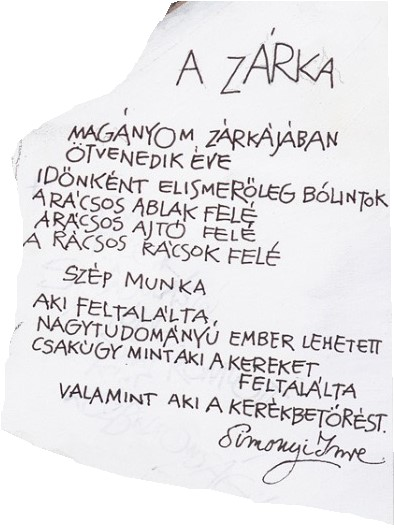 A ZÁRKA
MAGÁNYOM ZÁRKÁJÁBAN
ÖTVENEDIK ÉVE
IDŐNKÉNT ELISMERŐLEG BÓLINTOK
A RÁCSOS ABLAK FELÉ
A RÁCSOS AJTÓ FELÉ
A RÁCSOS RÁCSOK FELÉ
SZÉP MUNKA
AKI FELTALÁLTA,
NAGYTUDOMÁNYÚ EMBER LEHETETT
CSAKÚGY MINT AKI A KEREKET
FELTALÁLTA
VALAMINT AKI A KERÉKBETÖRÉST.
Simonyi Imre